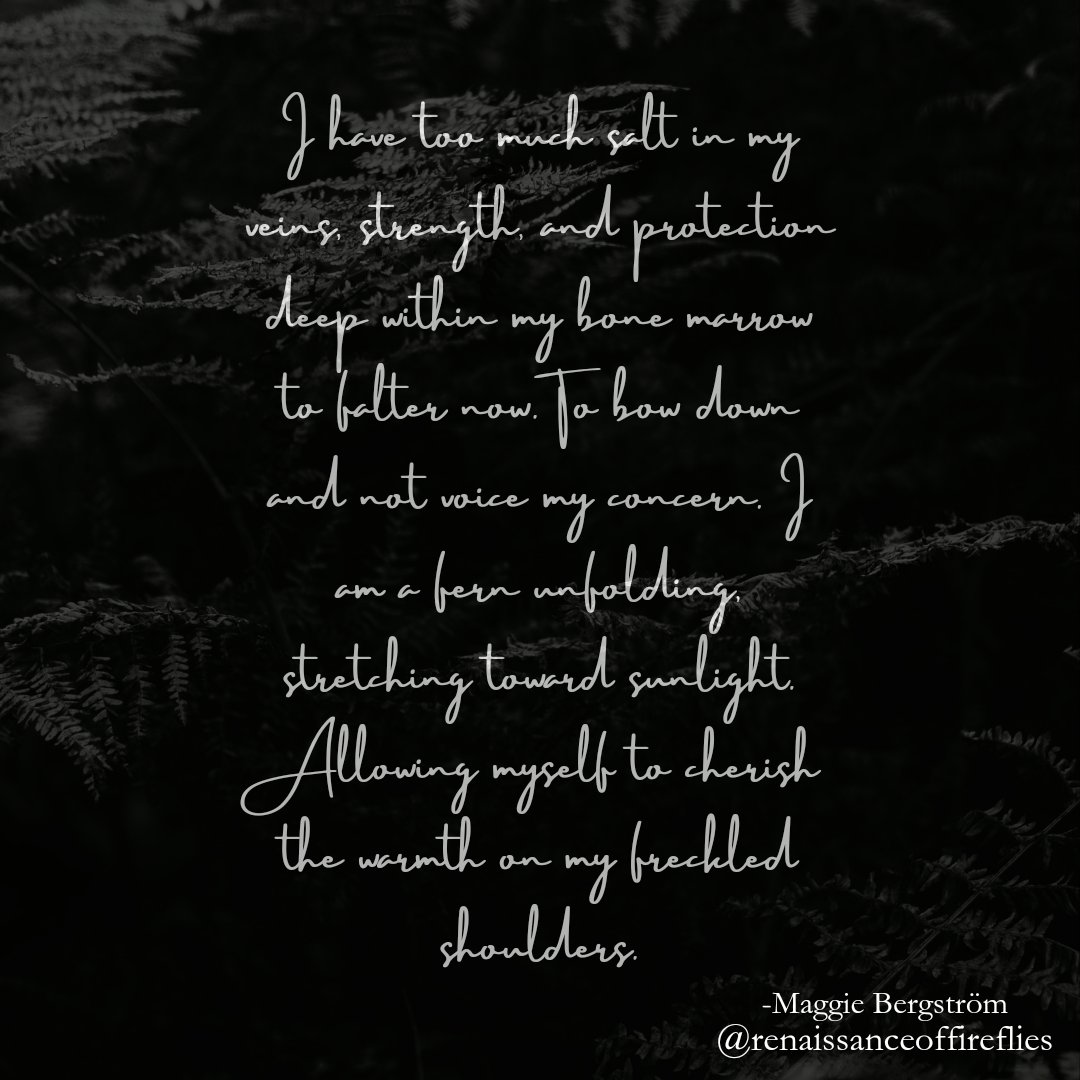 I have too much salt in my
veins, strength, and protection
deep within my bone marrow
to falter now. To bow down
and not voice my concern. I
am a fern unfolding,
stretching toward sunlight.
Allowing myself to cherish
the warmth on my freckled
shoulders.
-Maggie Bergström
@renaissanceoffireflies